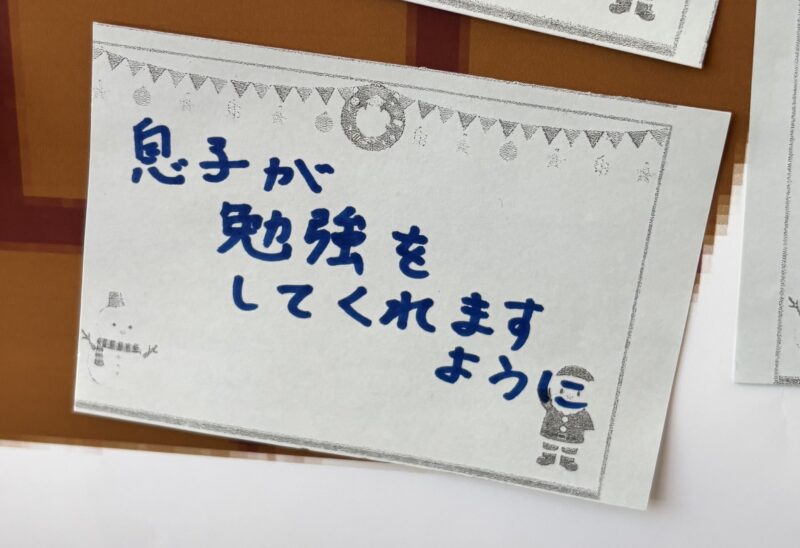 息子が
勉強を
してくれます
ように